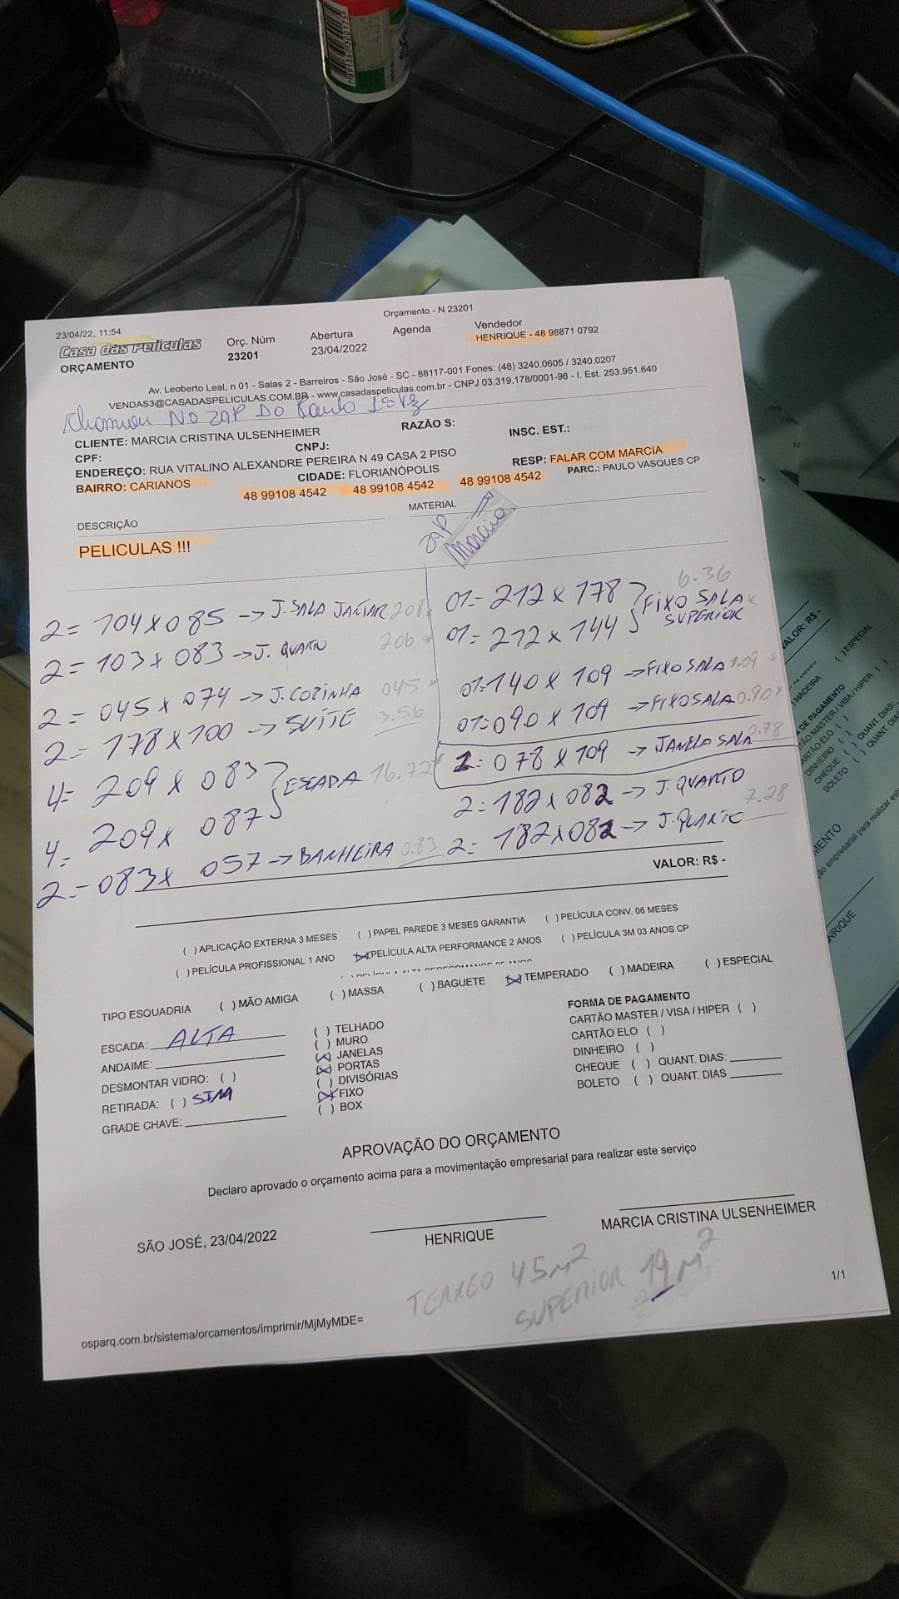 Orçamento - N 23201
23/04/22, 11:54
Casa das Películas
ORÇAMENTO
Orç. Núm
23201
Abertura
23/04/2022
Agenda
Vendedor
HENRIQUE - 48 98871 0792
Av. Leoberto Leal, n 01 - Salas 2 - Barreiros - São José - SC - 88117-001 Fones: (48) 3240.0605 / 3240.0207
VENDAS3@CASADASPELICULAS.COM.BR - www.casadaspeliculas.com.br - CNPJ 03.319.178/0001-98 - I. Est. 253.951.640
No ZAP Do Paulo
CLIENTE: MARCIA CRISTINA ULSENHEIMER
RAZÃO S:
CPF:
CNPJ:
INSC. EST.:
ENDEREÇO: RUA VITALINO ALEXANDRE PEREIRA N 49 CASA 2 PISO
BAIRRO: CARIANOS
CIDADE: FLORIANÓPOLIS
RESP: FALAR COM MARCIA
48 99108 4542 48 99108 4542 48 99108 4542
PARC.: PAULO VASQUES CP
DESCRIÇÃO
MATERIAL
PELICULAS !!!
ZAP
Marcia
2= 104x085 -> J. SALA JANTAR 208
2= 103x083 -> J. QUARTO 206
2= 045x074 -> J. COZINHA 045
2= 178x100 -> SUITE 3.56
4= 209x083
4= 209x087
ESCADA 16.72
2= 083x057 -> BANHEIRA 0.83
01= 212x178
01= 212x144
FIXO SALA
SUPERIOR
6.36
01= 140x109 -> FIXO SALA 1.09
01= 090x109 -> FIXO SALA 0.90
1= 078x109 -> JANELA SALA 0.78
2= 182x082 -> J. QUARTO
2= 182x082 -> J. QUARTO
7.28
VALOR: R$ -
( ) APLICAÇÃO EXTERNA 3 MESES ( ) PAPEL PAREDE 3 MESES GARANTIA ( ) PELÍCULA CONV. 06 MESES
( ) PELÍCULA PROFISSIONAL 1 ANO (X) PELÍCULA ALTA PERFORMANCE 2 ANOS ( ) PELÍCULA 3M 03 ANOS CP
TIPO ESQUADRIA ( ) MÃO AMIGA ( ) MASSA ( ) BAGUETE (X) TEMPERADO ( ) MADEIRA ( ) ESPECIAL
ESCADA: ALTA
ANDAIME:
DESMONTAR VIDRO: ( )
RETIRADA: ( ) SIM
GRADE CHAVE:
( ) TELHADO
( ) MURO
(X) JANELAS
(X) PORTAS
( ) DIVISÓRIAS
(X) FIXO
( ) BOX
FORMA DE PAGAMENTO
CARTÃO MASTER / VISA / HIPER ( )
CARTÃO ELO ( )
DINHEIRO ( )
CHEQUE ( ) QUANT. DIAS:
BOLETO ( ) QUANT. DIAS
APROVAÇÃO DO ORÇAMENTO
Declaro aprovado o orçamento acima para a movimentação empresarial para realizar este serviço
SÃO JOSÉ, 23/04/2022
HENRIQUE
MARCIA CRISTINA ULSENHEIMER
TERREO 45m²
SUPERIOR 19m²
1/1
osparq.com.br/sistema/orcamentos/imprimir/MjMyMDE=